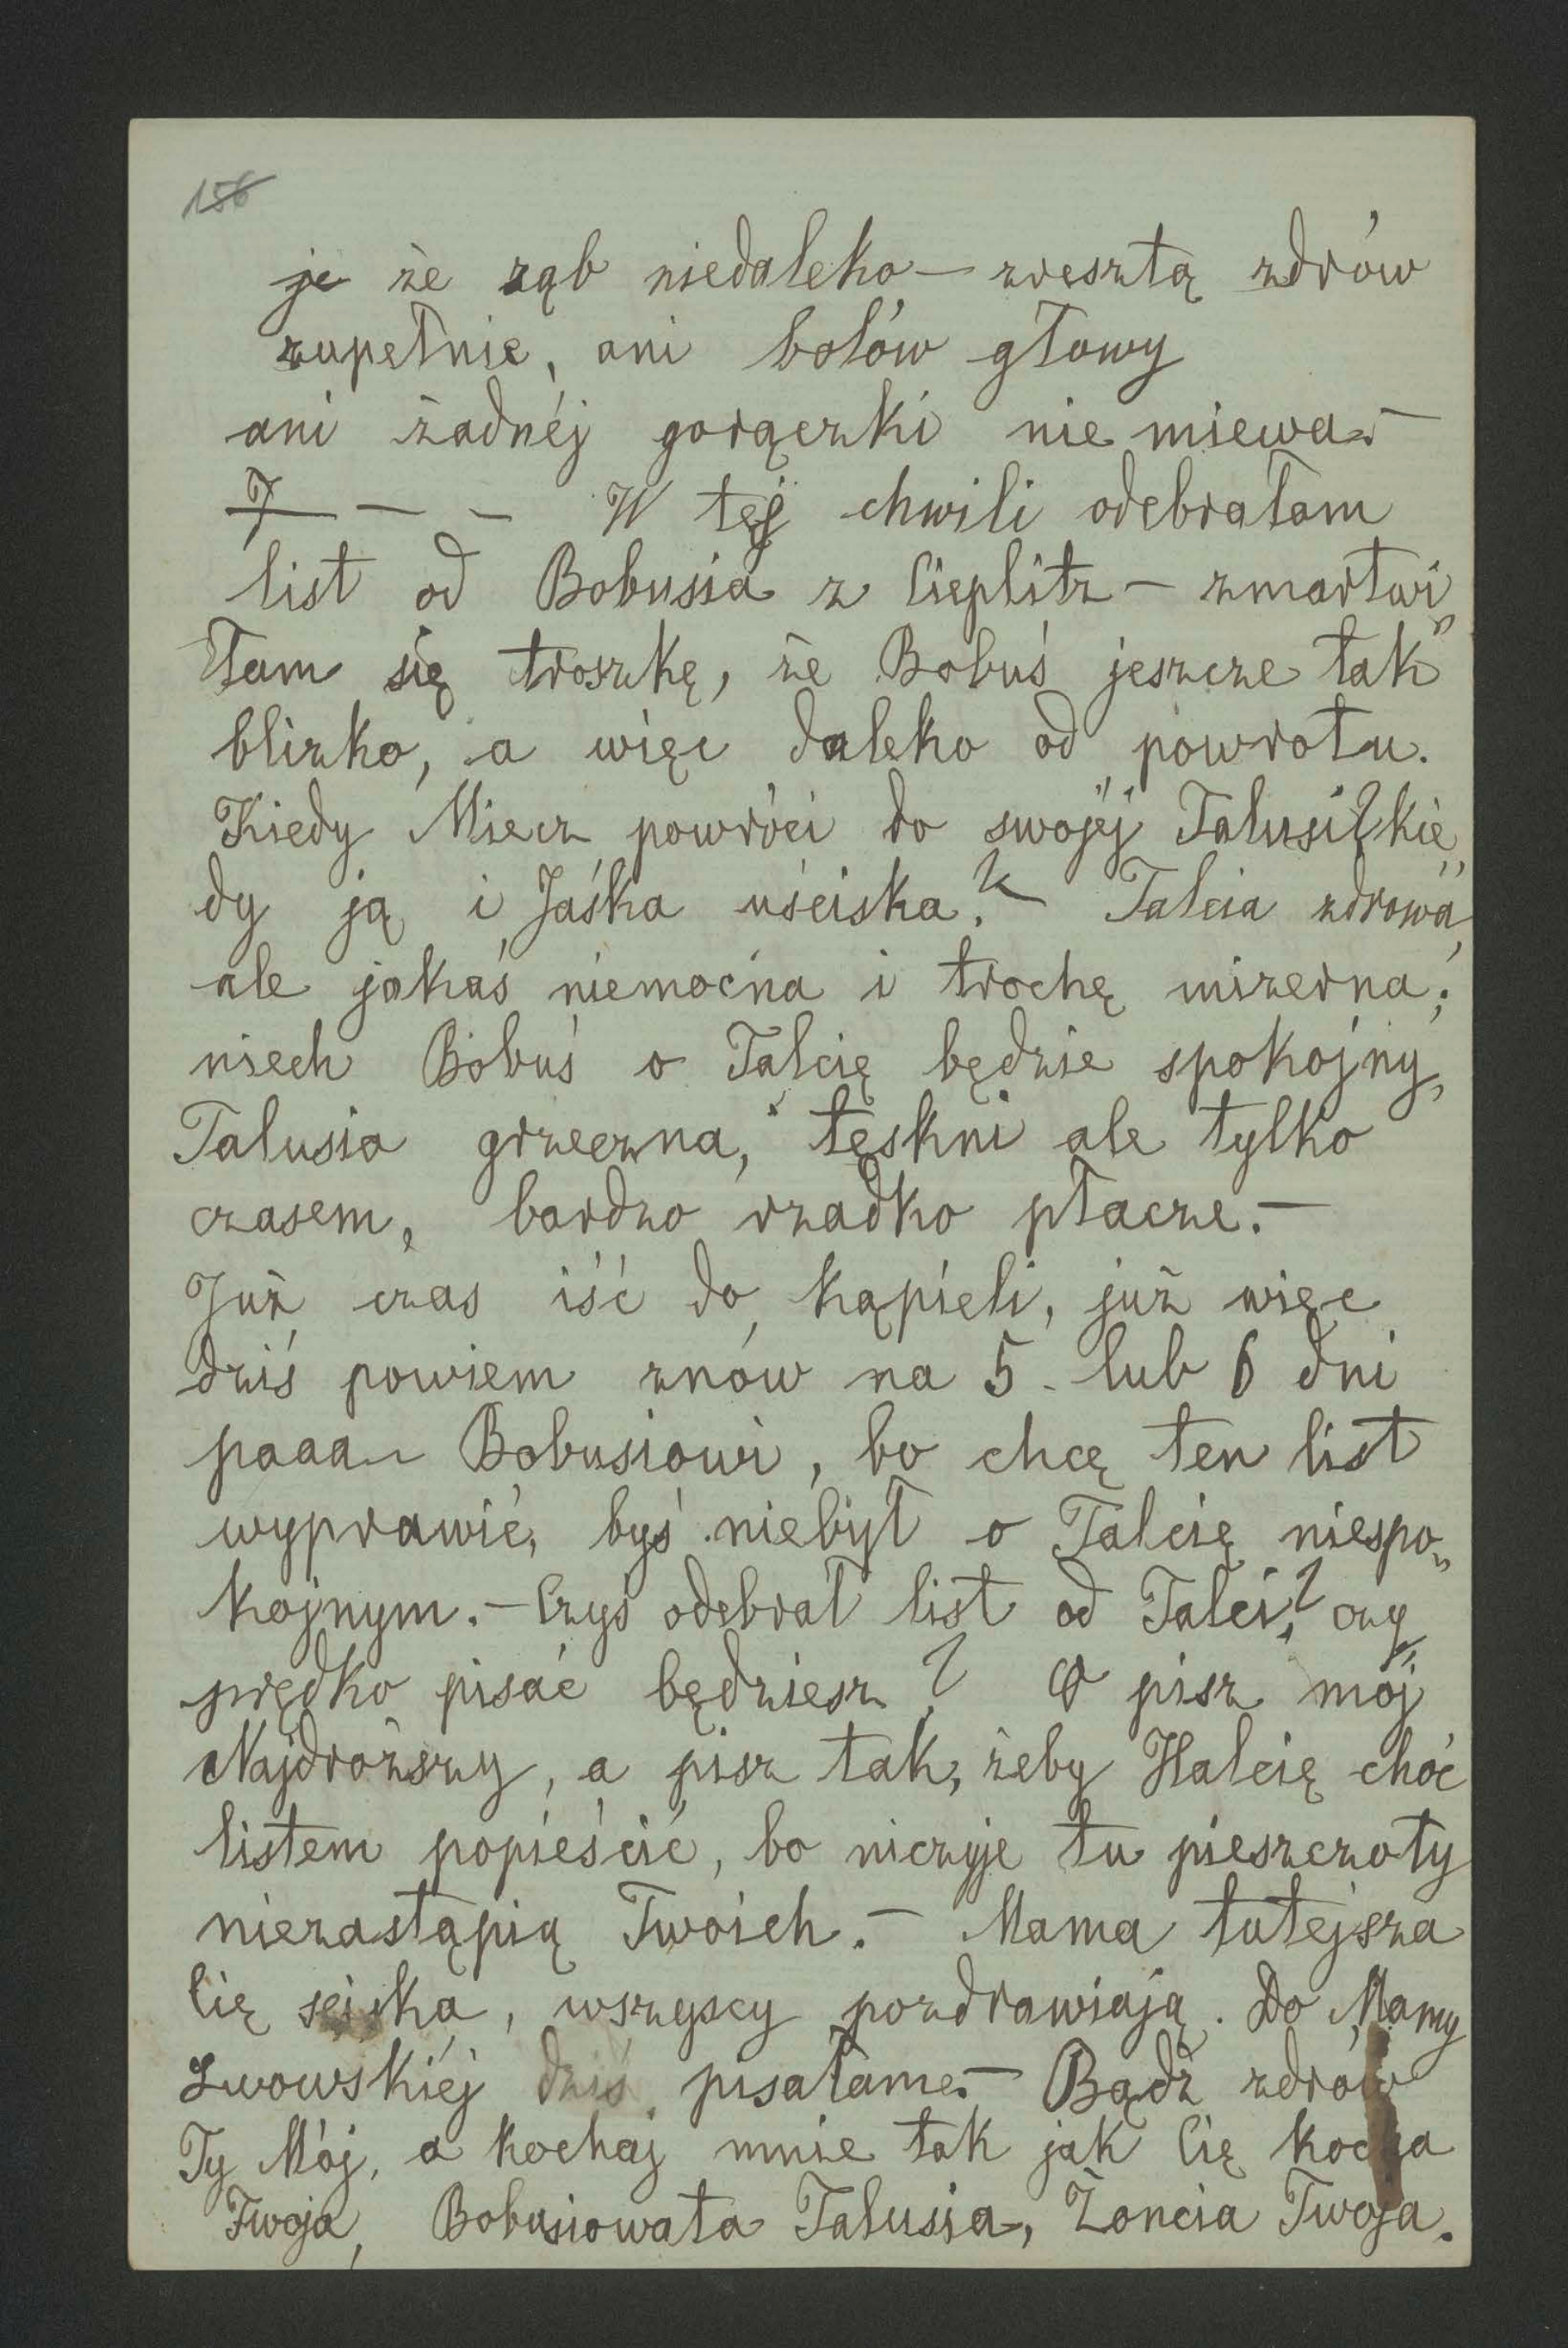 156
je że ząb niedaleko — zresztą zdrów
zupełnie, ani bolów głowy
ani żadnéj gorączki nie miewa. —
7 — — W téj chwili odebrałam
list od Bobusia z Cieplitz — zmartwi„
łam się troszkę, że Bobuś jeszcze tak
blizko, a więc daleko od powrotu.
Kiedy Miecz powróci do swojéj Talusi? kie„
dy ją i Jaśka uściska? — Talcia zdrowa,
ale jakaś niemocna i trochę mizerna;
niech Bobuś o Talcię będzie spokojny,
Talusia grzeczna, tęskni ale tylko
czasem, bardzo rzadko płacze. —
Już czas iść do kąpieli, już więc
dziś powiem znów na 5 - lub 6 dni
paaa Bobusiowi, bo chcę ten list
wyprawić, byś niebył o Talcię niespo„
kojnym. — Czyś odebrał list od Talci? czy
prędko pisać będziesz? O pisz mój
Najdroższy, a pisz tak, żeby Halcię choć
listem popieścić, bo niczyje tu pieszczoty
niezastąpią Twoich. — Mama tutejsza
Cię ściska, wszyscy pozdrawiają. Do Mamy
Lwowskiéj dziś pisałam. — Bądź zdrów
Ty Mój, a kochaj mnie tak jak Cię kocha
Twoja, Bobusiowata Talusia, Żoncia Twoja.